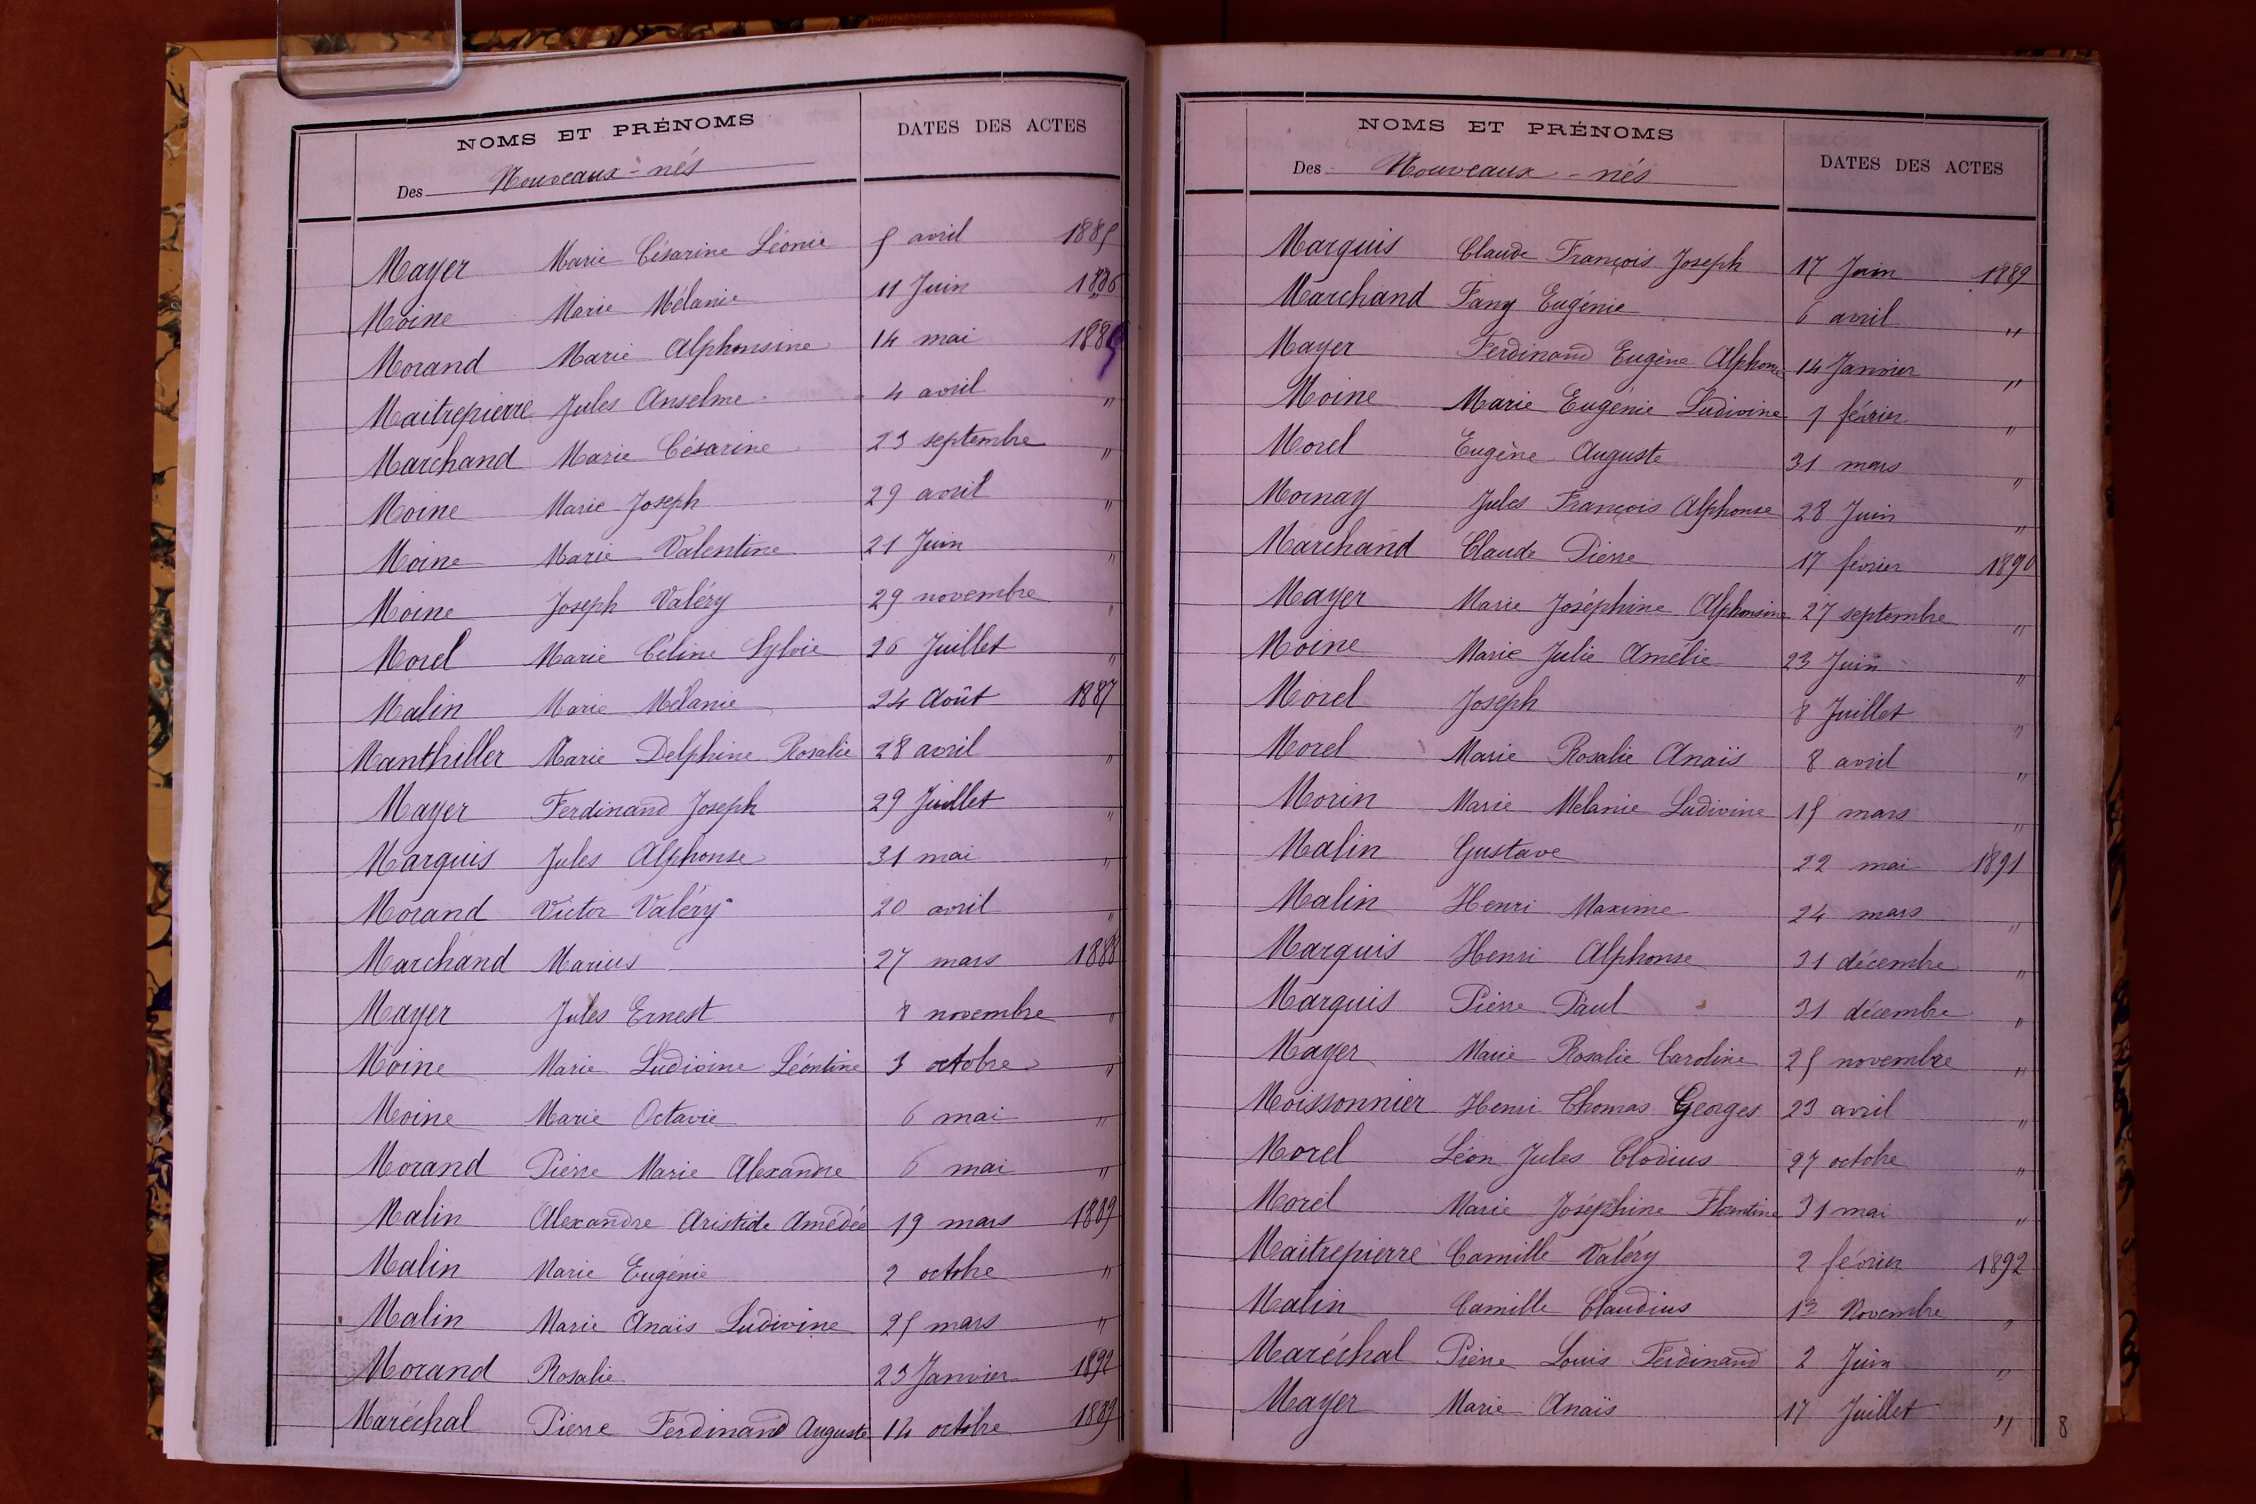 NOMS ET PRÉNOMS
DATES DES ACTES
Des Nouveaux-nés
Mayer Marie Césarine Léonie 5 avril 1885
Moine Marie Mélanie 11 Juin 1886
Morand Marie Alphonsine 14 mai
Maitrepierre Jules Anselme 4 avril "
Marchand Marie Césarine 23 septembre "
Moine Marie Joseph 29 avril "
Moine Marie Valentine 21 Juin "
Moine Joseph Valéry 29 novembre "
Morel Marie Céline Sylvie 26 Juillet "
Malin Marie Mélanie 24 Août 1887
Manthiller Marie Delphine Rosalie 28 avril "
Mayer Ferdinand Joseph 29 Juillet "
Marquis Jules Alphonse 31 mai "
Morand Victor Valéry 20 avril "
Marchand Marius 27 mars 1888
Mayer Jules Ernest 8 novembre "
Moine Marie Ludivine Léontine 3 octobre "
Moine Marie Octavie 6 mai "
Morand Pierre Marie Alexandre 6 mai "
Malin Alexandre Aristide Amédée 19 mars 1889
Malin Marie Eugénie 2 octobre "
Malin Marie Anaïs Ludivine 25 mars "
Morand Rosalie 23 Janvier 1892
Maréchal Pierre Ferdinand Auguste 14 octobre 1889
NOMS ET PRÉNOMS
DATES DES ACTES
Des Nouveaux-nés
Marquis Claude François Joseph 17 Juin 1889
Marchand Fany Eugénie 6 avril "
Mayer Ferdinand Eugène Alphonse 14 Janvier "
Moine Marie Eugénie Ludivine 1 février "
Morel Eugène Auguste 31 mars "
Mornay Jules François Alphonse 28 Juin "
Marchand Claude Pierre 17 février 1890
Mayer Marie Joséphine Alphonsine 27 septembre "
Moine Marie Julie Amélie 23 Juin "
Morel Joseph 8 Juillet "
Morel Marie Rosalie Anaïs 8 avril "
Morin Marie Melanie Ludivine 15 mars "
Malin Gustave 22 mai 1891
Malin Henri Maxime 24 mars "
Marquis Henri Alphonse 31 décembre "
Marquis Pierre Paul 31 décembre "
Mayer Marie Rosalie Caroline 25 novembre "
Moissonnier Henri Thomas Georges 23 avril "
Morel Léon Jules Clodius 27 octobre "
Morel Marie Joséphine Florentine 31 mai "
Maitrepierre Camille Valéry 2 février 1892
Malin Camille Claudius 13 Novembre "
Maréchal Pierre Louis Ferdinand 2 Juin "
Mayer Marie Anaïs 17 Juillet "
8